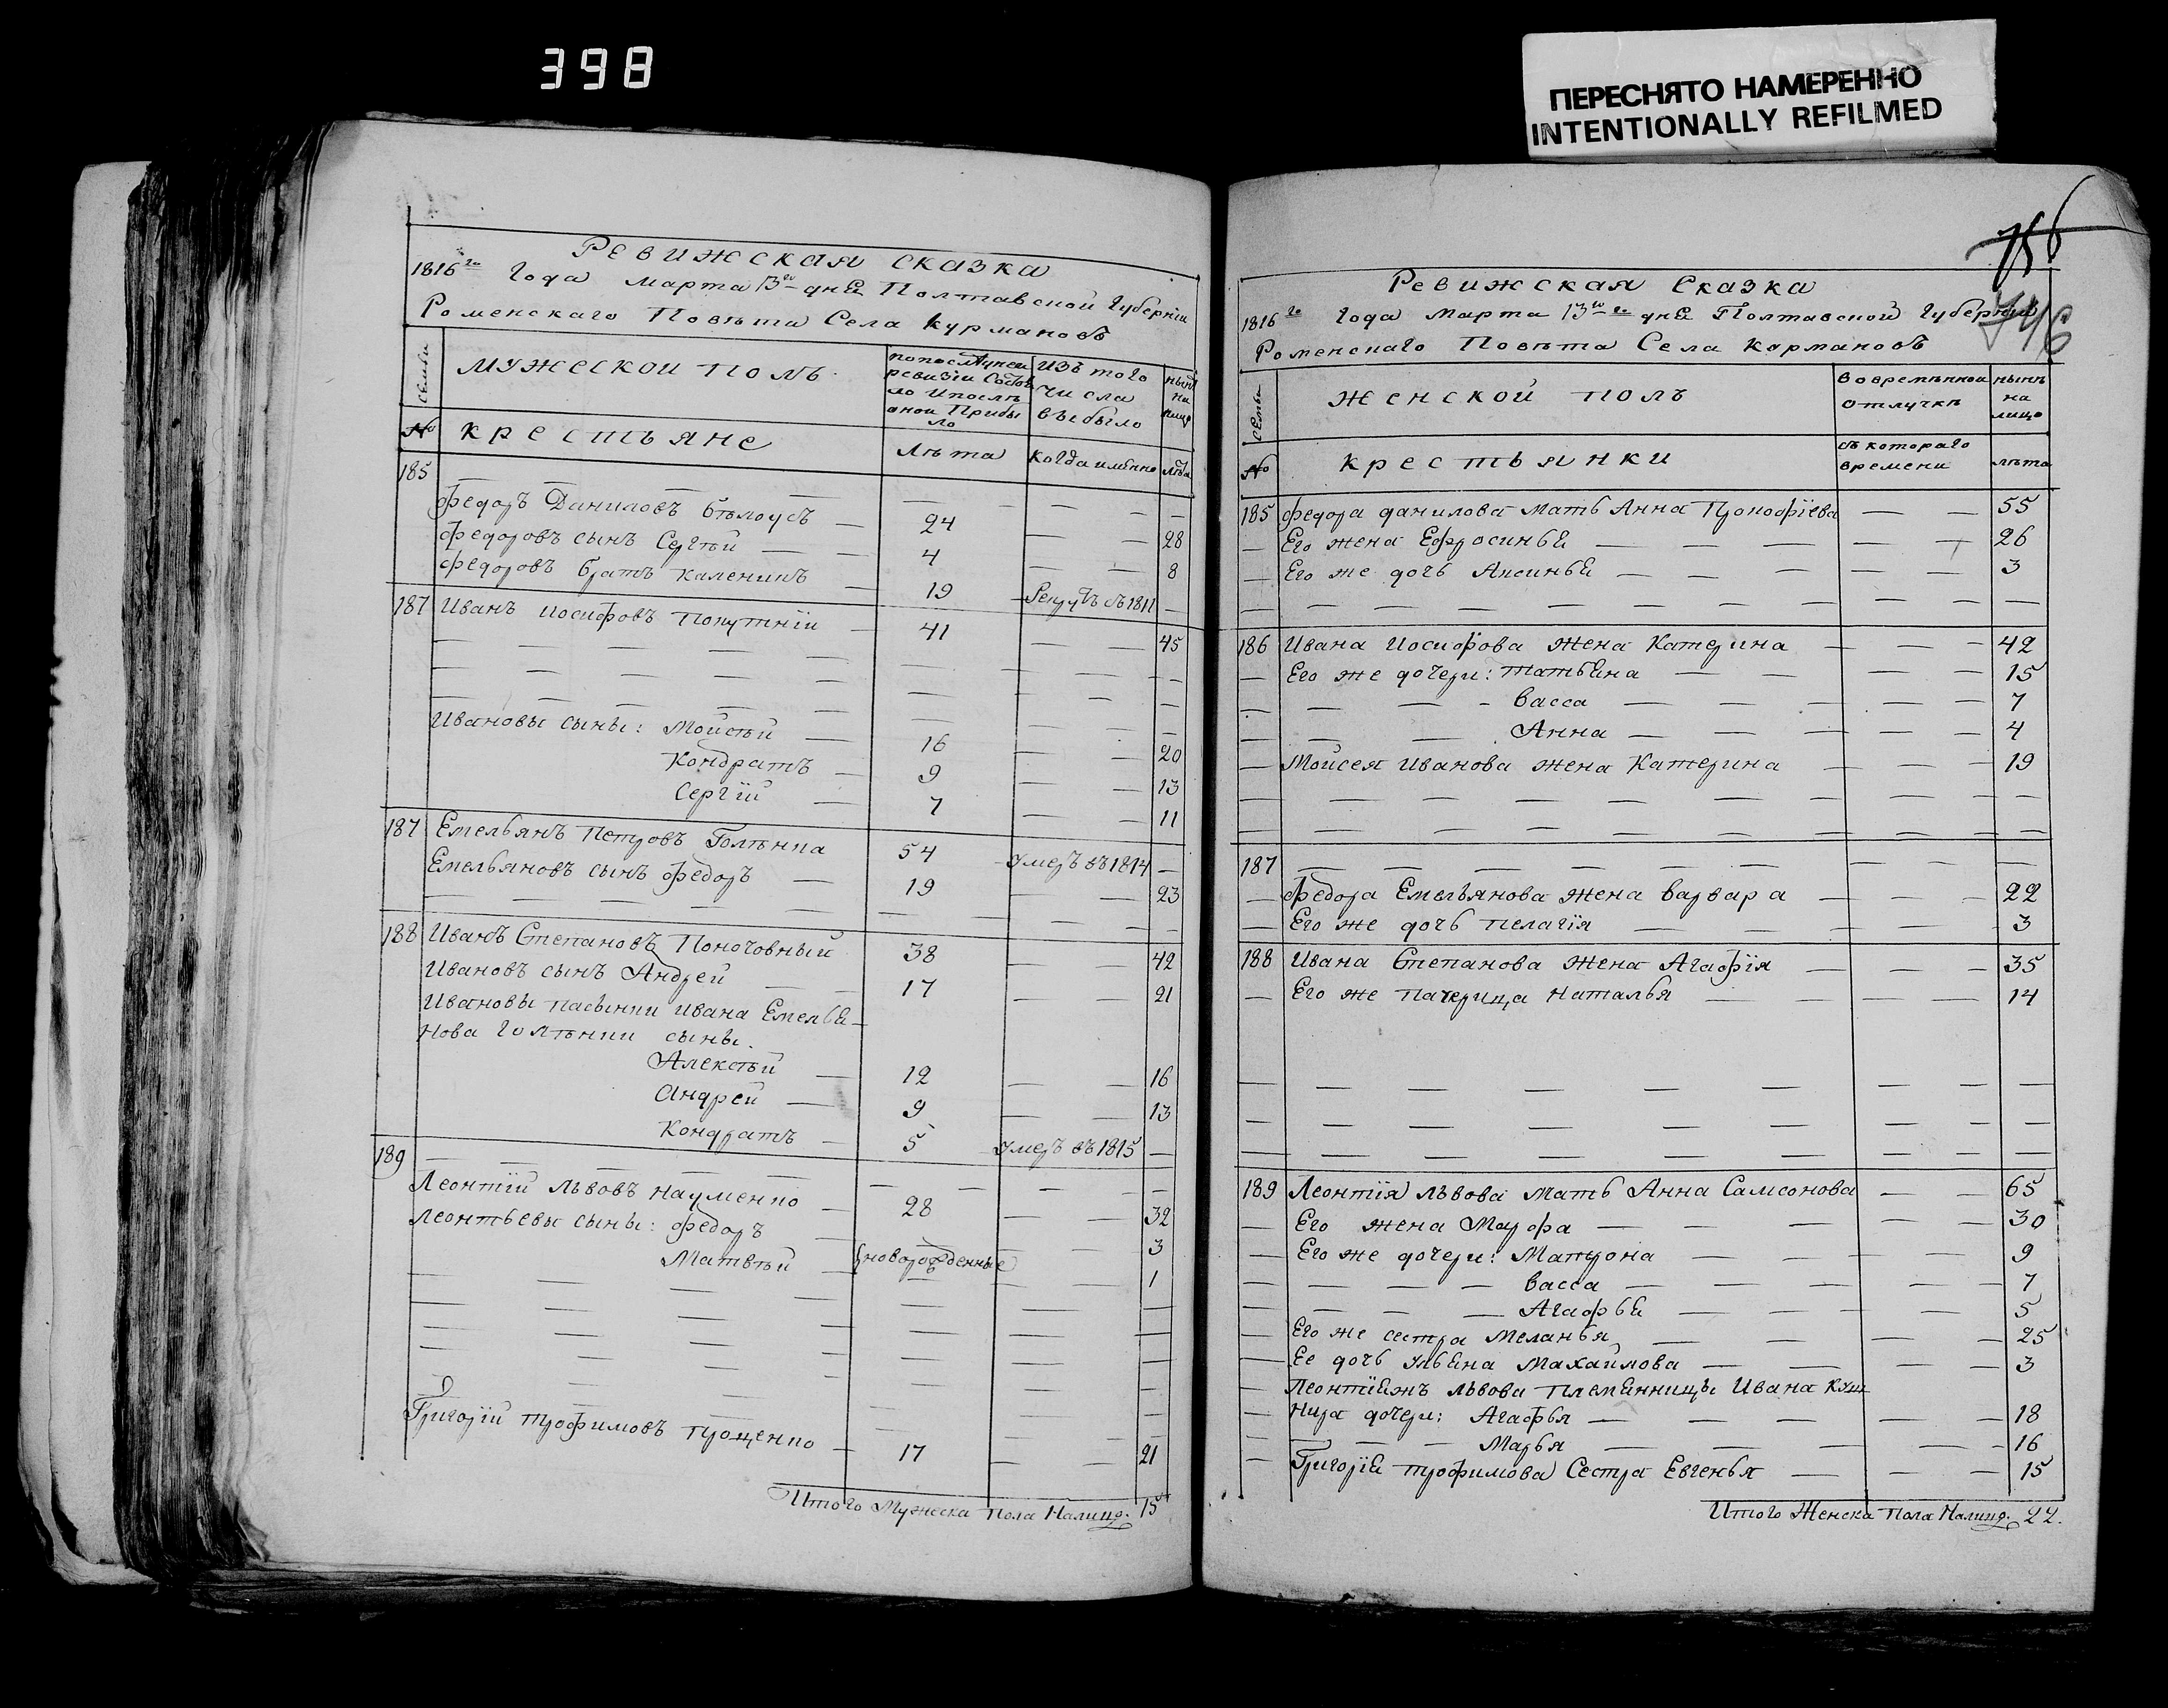 398
ПЕРЕСНЯТО НАМЕРЕННО
INTENTIONALLY REFILMED
Ревижская сказка
1816го Года марта 13го дня Полтавской Губерніи
Роменскаго Повѣта Села Курмановъ
Семьи
мужескои полъ
по послѣдней
ревизіи состоя
ло и послѣ
оной Прибы
ло
изъ того
числа
выбыло
нынѣ
на
лицо
№ крестьяне
Лѣта
Когда именно
лѣта
185
Федоръ Даниловъ бѣлоусъ — 24 — — 28
Федоровъ сынъ Сергѣй — — 4 — — 8
Федоровъ братъ каленикъ — 19 Рекрутъ съ 1811 —
187 Иванъ иосифовъ Попутніи — 41 — — 45
Ивановы сыны: Мойсѣй — 16 — — 20
Кондратъ — 9 — — 13
Сергій — 7 — — 11
187 Емельянъ Петровъ Голѣнка 54 Умеръ въ 1814 —
Емельяновъ сынъ федоръ — 19 — — 23
188 Иванъ Степановъ Поночовный 38 — — 42
Ивановъ сынъ Андрей — — 17 — — 21
Ивановы пасынки ивана Емелья-
нова голѣнки сыны.
Алексѣй — 12 — — 16
Андрей — 9 — — 13
Кондратъ — 5 Умеръ въ 1815 —
189
Леонтій львовъ науменко — 28 — — 32
леонтьевы сыны: федоръ — 3
Матвѣй — {новорожденные 1
Григорій трофимовъ троценко — 17 — — 21
Итого Мужеска пола Налицо. 15
756
746
Ревижская Сказка
1816го Года Марта 13го дня Полтавской Губерніи
Роменскаго Повѣта Села Кармановъ
Семьи
женской полъ
во временной
отлучкѣ
нынѣ
на
лицо
№ крестьянки
съ котораго
времени
лѣта
185 федора данилова мать Анна Пронофіева — — 55
— Его жена Ефросинья — — — — — 26
— Его же дочь Аксинья — — — — — 3
186 Ивана Иосифова жена Катерина — — — 42
— Его же дочери: татьяна — — — — 15
васса — — — — 7
Анна — — — — 4
— Мойсея иванова жена Катерина — — — 19
187
— федора Емельянова жена варвара — — — 22
— Его же дочь пелагія — — — — 3
188 Ивана Степанова жена Агафія — — — 35
— Его же падчерица наталья — — — — 14
189 Леонтія львова мать Анна Самсонова — — 65
— Его жена Марфа — — — — — 30
— Его же дочери: Матрона — — — — 9
васса — — — — 7
Агафья — — — — 5
— Его же сестра меланья — — — 25
— Ее дочь ульяна Махайлова — — — — 3
— Леонтіежъ львова племянницы Ивана куш
— нира дочери: Агафья — — — — — 18
Марья — — — — 16
— Григорія трофимова Сестра Евгенья — — — 15
Итого Женска пола Налицо. 22.